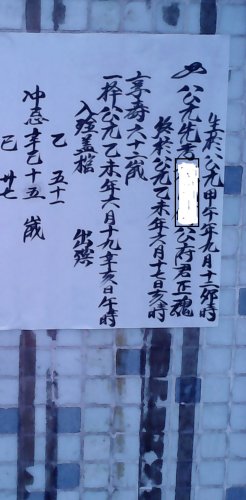 生於公元甲午年九月十二卯時
公元先考 公府君正魂
終於公元乙未年六月十七日亥時
享壽六十二歲
一梓公元乙未年六月十九辛亥日午時
入殮蓋棺 出殯
乙 五十一
沖忌辛巳十五歲
巳 廿七